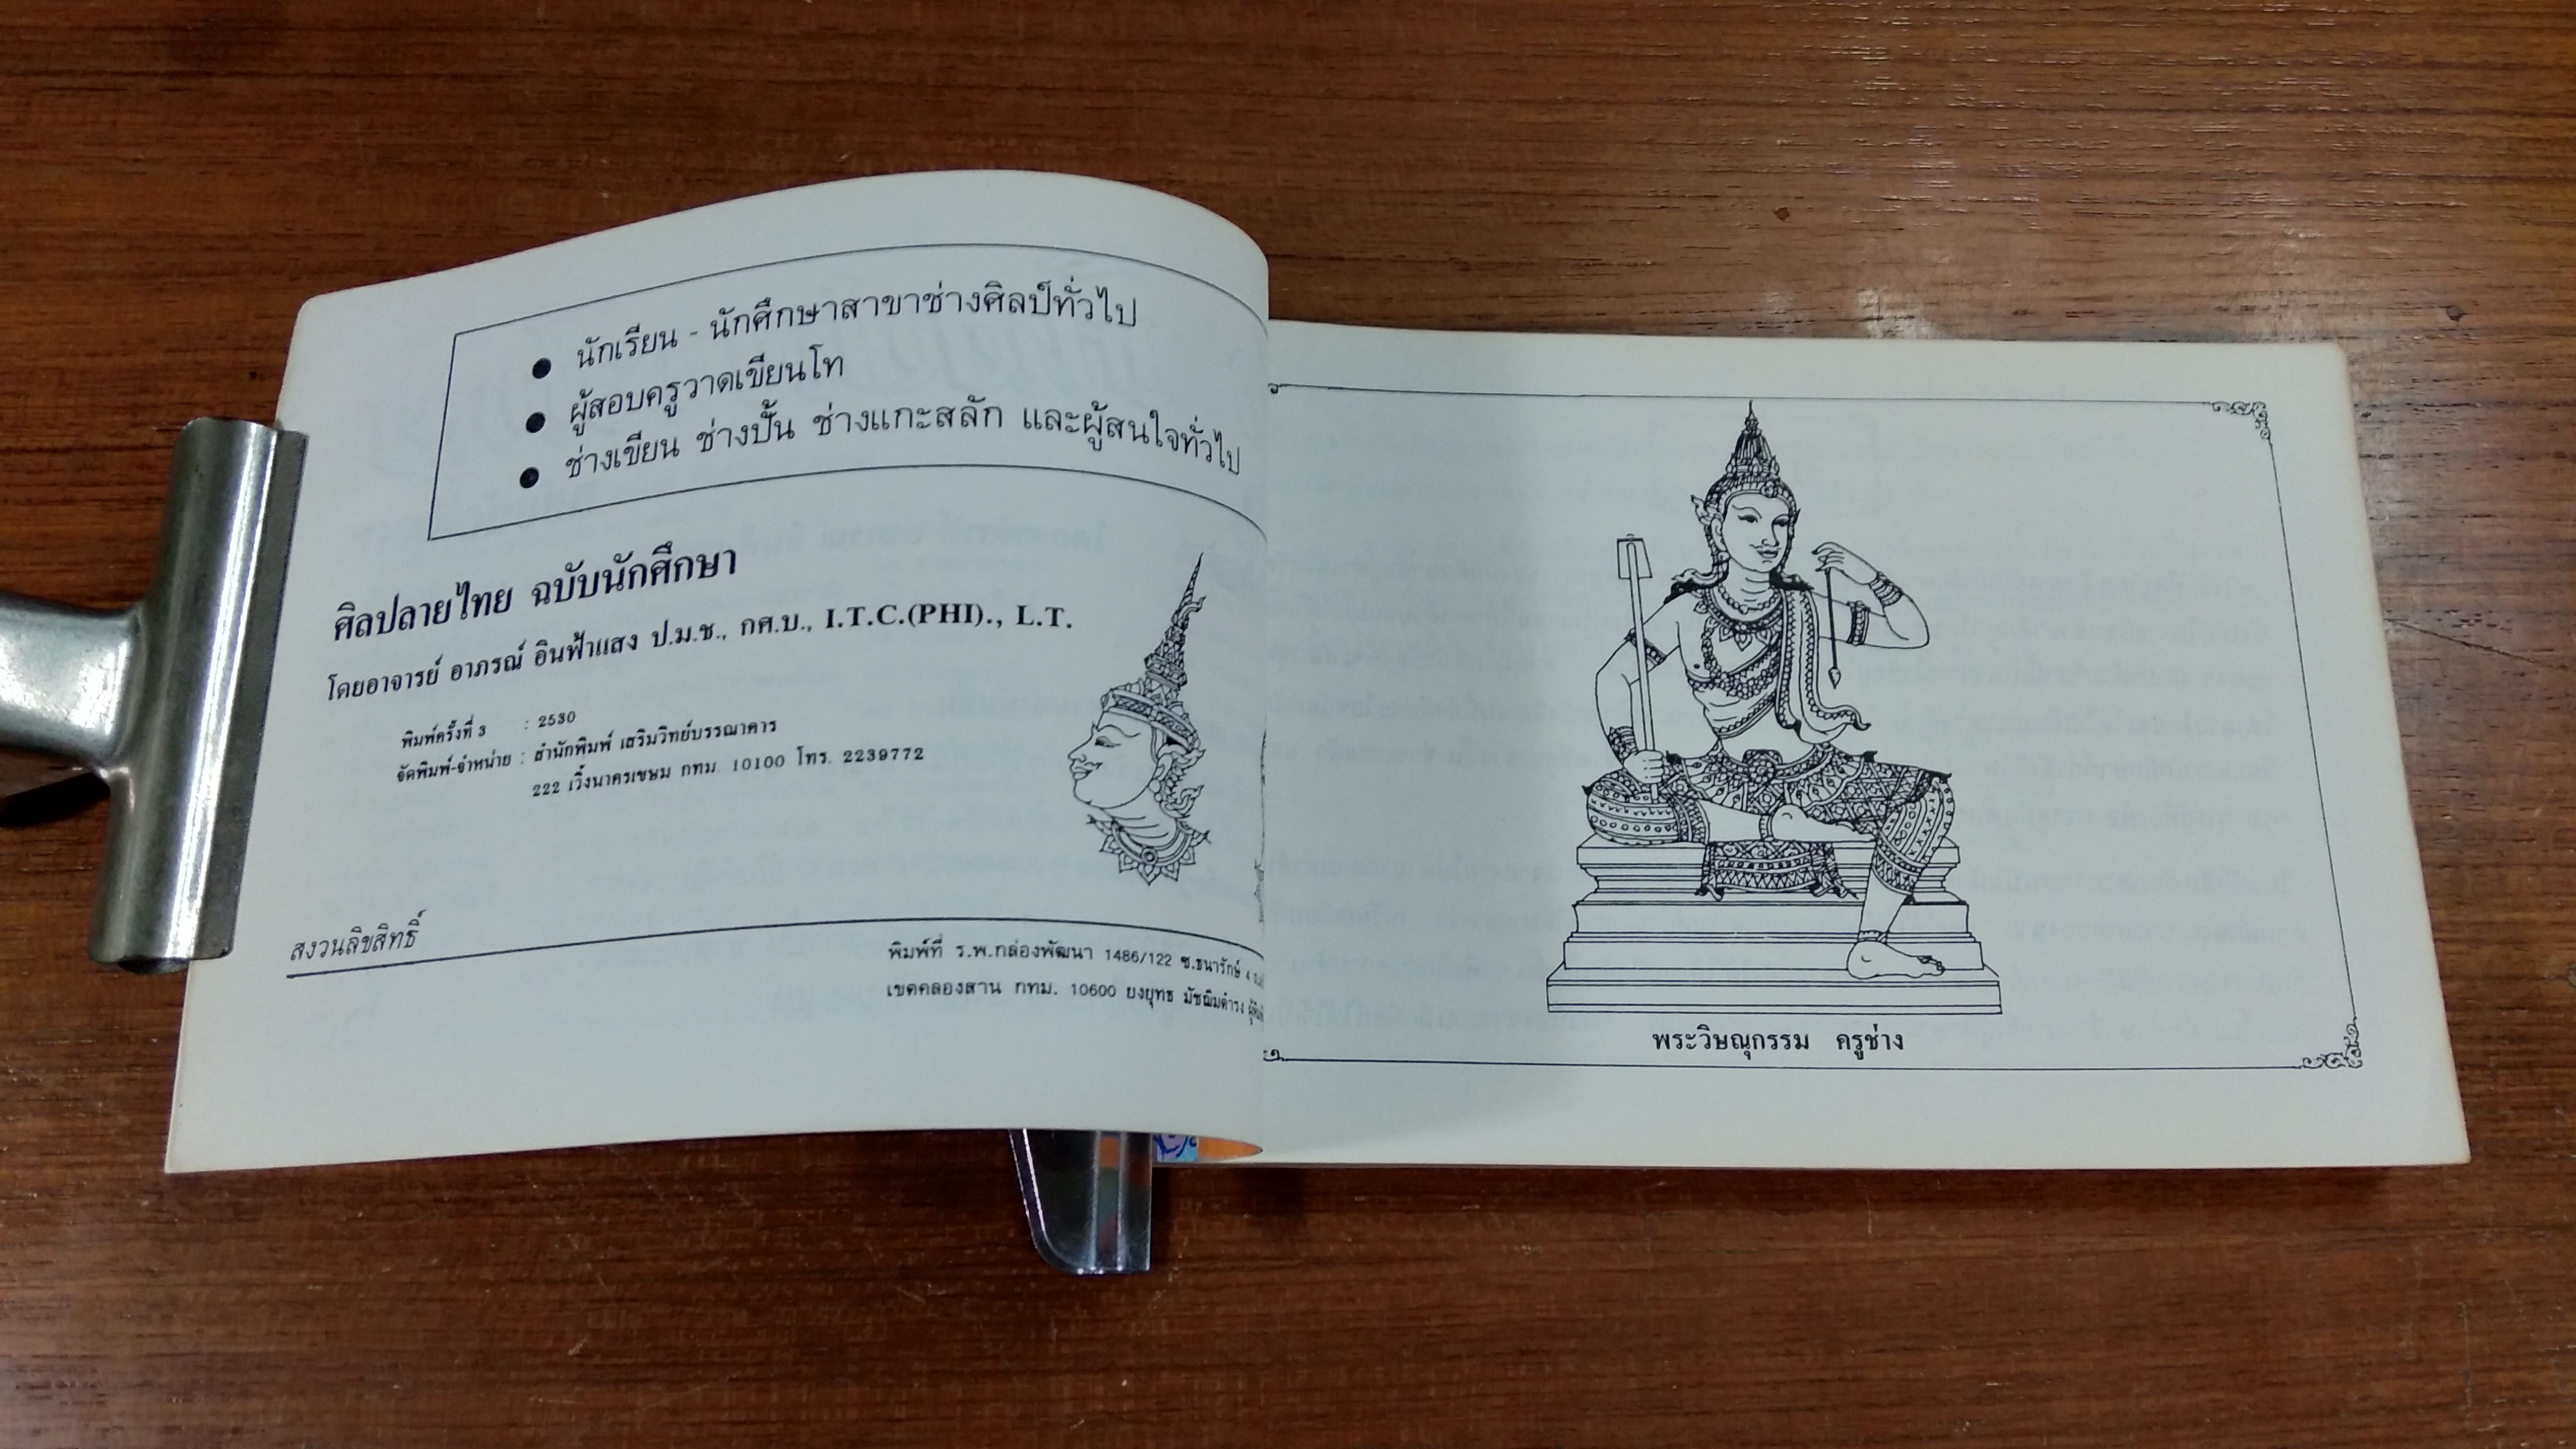 ● นักเรียน - นักศึกษาสาขาช่างศิลป์ทั่วไป
● ผู้สอบครูวาดเขียนโท
● ช่างเขียน ช่างปั้น ช่างแกะสลัก และผู้สนใจทั่วไป
ศิลปลายไทย ฉบับนักศึกษา
โดยอาจารย์ อาภรณ์ อินฟ้าแสง ป.ม.ช., กศ.บ., I.T.C.(PHI)., L.T.
พิมพ์ครั้งที่ 3 : 2530
จัดพิมพ์-จำหน่าย : สำนักพิมพ์ เสริมวิทย์บรรณาคาร
222 เวิ้งนาครเขษม กทม. 10100 โทร. 2239772
สงวนลิขสิทธิ์
พิมพ์ที่ ร.พ.กล่องพัฒนา 1486/122 ซ.ธนารักษ์ 4
เขตคลองสาน กทม. 10600 ยงยุทธ มัชฌิมดำรง
พระวิษณุกรรม ครูช่าง